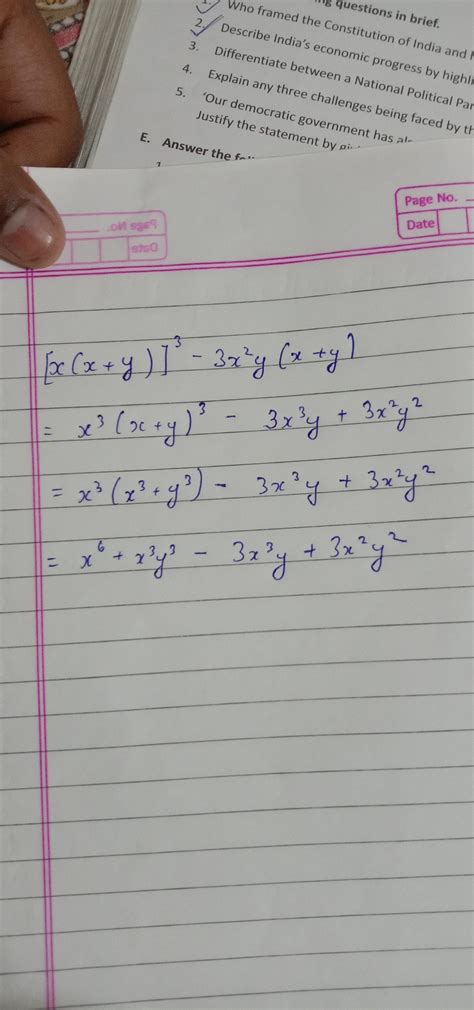 ng questions in brief.
1. Who framed the Constitution of India and
2. Describe India's economic progress by highli
3. Differentiate between a National Political Par
4. Explain any three challenges being faced by th
5. 'Our democratic government has
Justify the statement by
E. Answer the
Page No.
Date
Page No.
Date
[x(x+y)]³ - 3x²y (x+y)
= x³(x+y)³ - 3x³y + 3x²y²
= x³(x³+y³) - 3x³y + 3x²y²
= x⁶ + x³y³ - 3x³y + 3x²y²